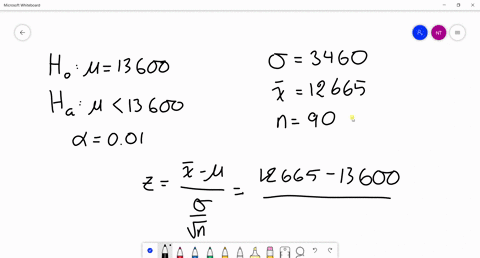 Microsoft Whiteboard
NT
H₀: μ = 13600
Hₐ: μ < 13600
α = 0.01
σ = 3460
x̄ = 12665
n = 90
z = (x̄ - μ) / (σ / √n) = 12665 - 13600